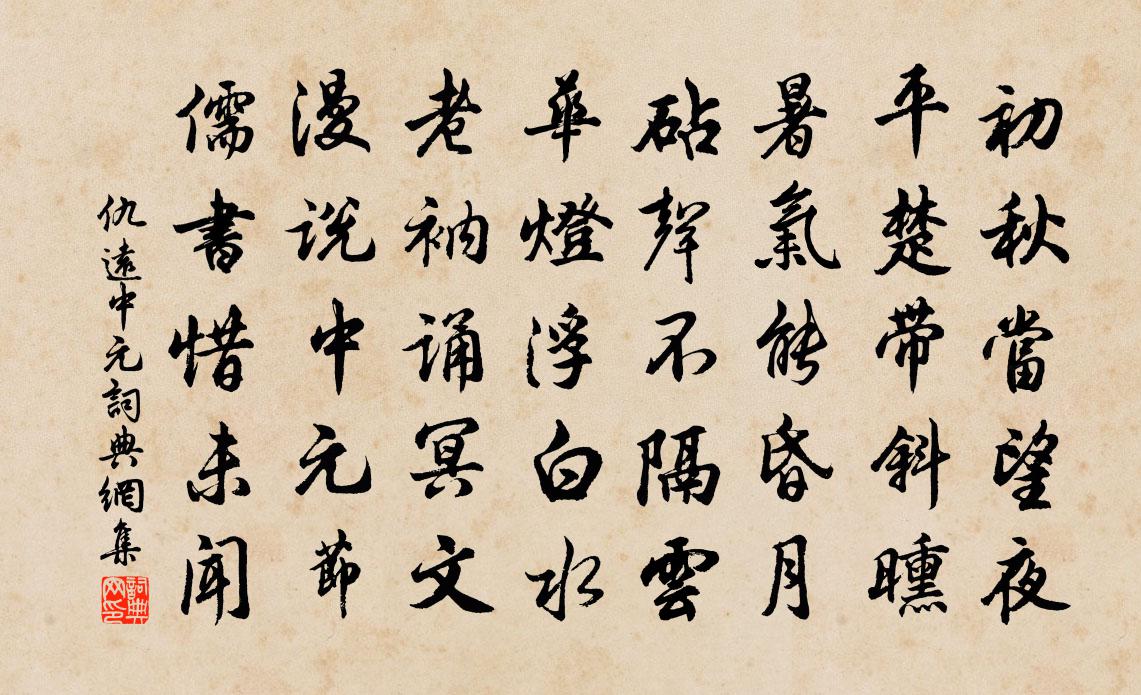 初秋當望夜
平楚帶斜曛
暑氣能昏月
砧聲不隔雲
華燈浮白水
老衲誦冥文
漫説中元節
儒書惜未聞
仇遠中元詞典網集
詞典
网印